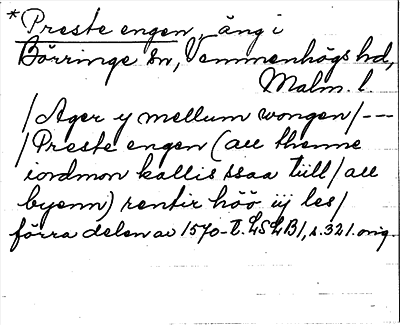 *Preste engen, äng i
Börringe sn, Vemmenhögs hd,
Malm. l.
/Ager y mellum wongen/---
/Preste engen (au thenne
iordmon kallis ssaa tiill/au
byenn) rentir höö iij les/
förra delen av 1570-t. LSLB1, s. 321. orig.